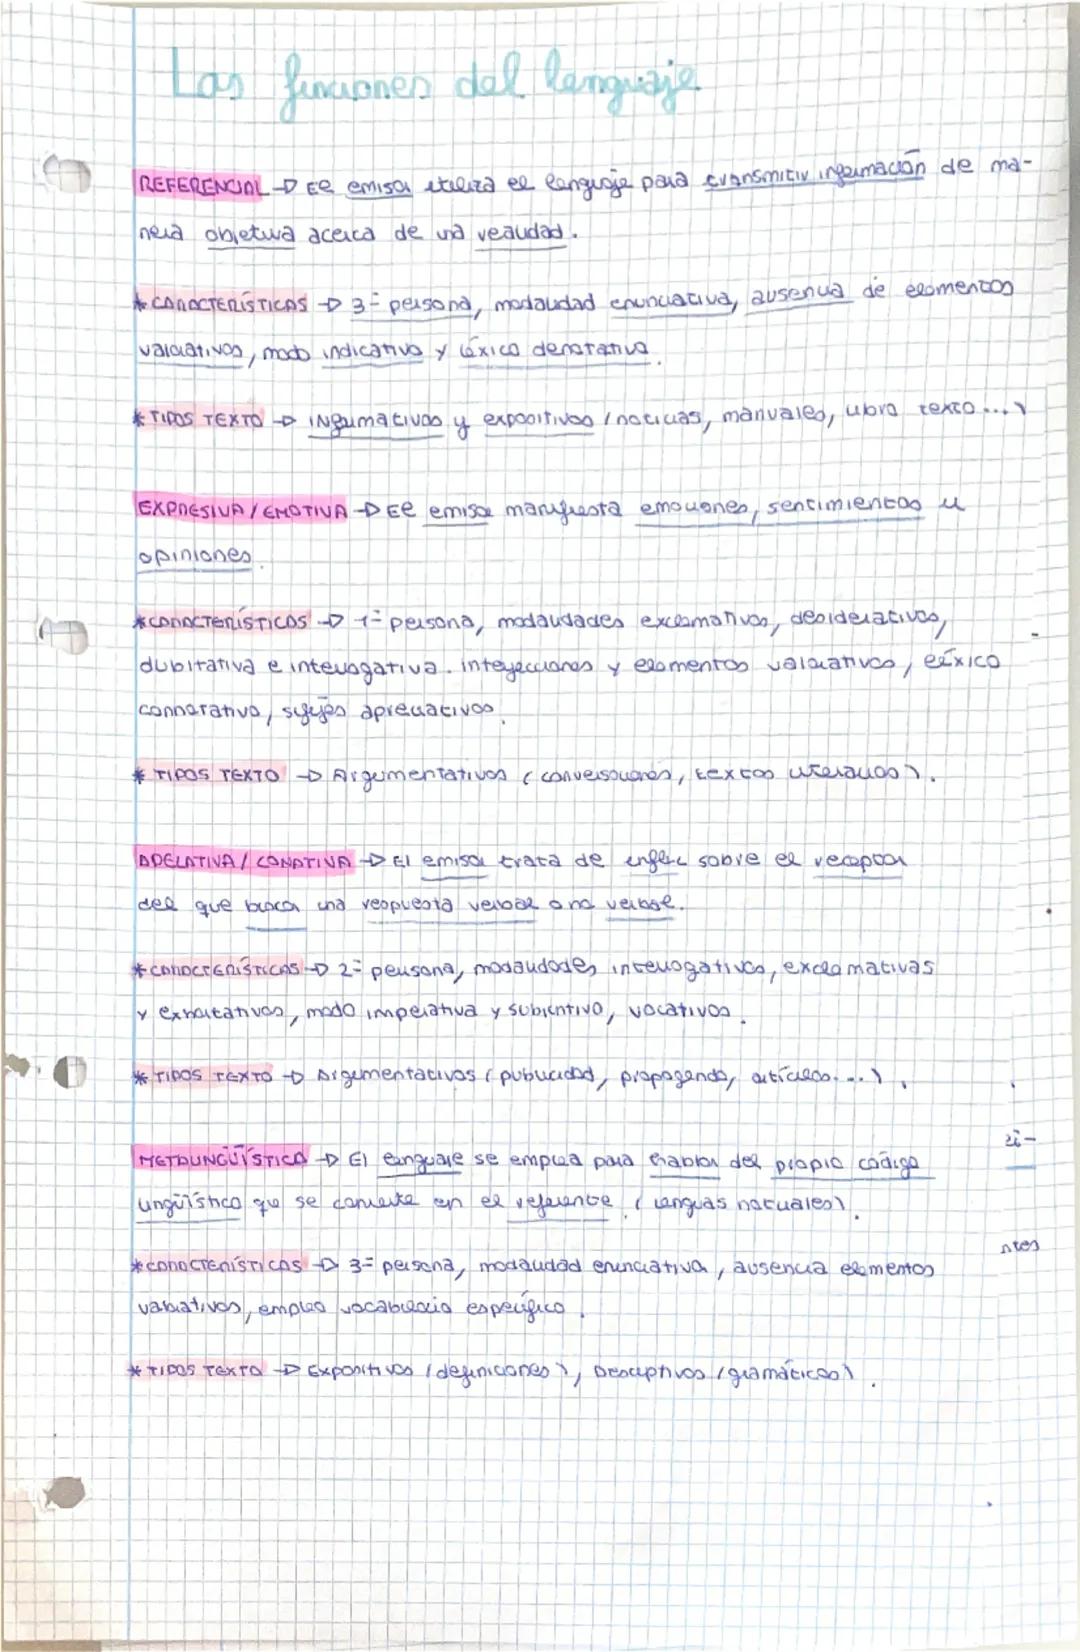 Las funciones del lenguaje
REFERENCIAL → El emisor utiliza el lenguaje para transmitir información de ma-
nera objetiva acerca de una realidad.
* CARACTERÍSTICAS → 3ª persona, modalidad enunciativa, ausencia de elementos
valorativos, modo indicativo y léxico denotativo.
* TIPOS TEXTO → Informativos y expositivos (noticias, manuales, libro texto...)
EXPRESIVA / EMOTIVA → El emisor manifiesta emociones, sentimientos u
opiniones.
* CARACTERÍSTICAS → 1ª persona, modalidades exclamativas, desiderativas,
dubitativa e interrogativa. interjecciones y elementos valorativos, léxico
connotativo, sufijos apreciativos.
* TIPOS TEXTO → Argumentativos (conversaciones, textos literarios).
APELATIVA / CONATIVA → El emisor trata de influir sobre el receptor
del que busca una respuesta verbal o no verbal.
* CARACTERÍSTICAS → 2ª persona, modalidades interrogativas, exclamativas
y exhortativas, modo imperativa y subjuntivo, vocativos.
* TIPOS TEXTO → Argumentativos (publicidad, propaganda, artículos....).
METALINGÜÍSTICA → El lenguaje se emplea para hablar del propio código
lingüístico que se convierte en el referente (lenguas naturales).
* CARACTERÍSTICAS → 3ª persona, modalidad enunciativa, ausencia elementos
valorativos, empleo vocabulario específico.
* TIPOS TEXTO → Expositivos (definiciones), Descriptivos (gramáticas).
ntes